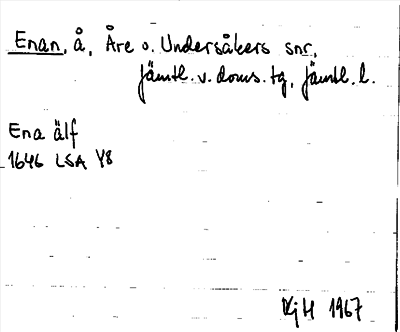 Enan, å, Åre o. Undersåkers snr,
Jämtl. v. doms. tg, Jämtl. l.
Ena älf
1646 LSA Y8
KjH 1967